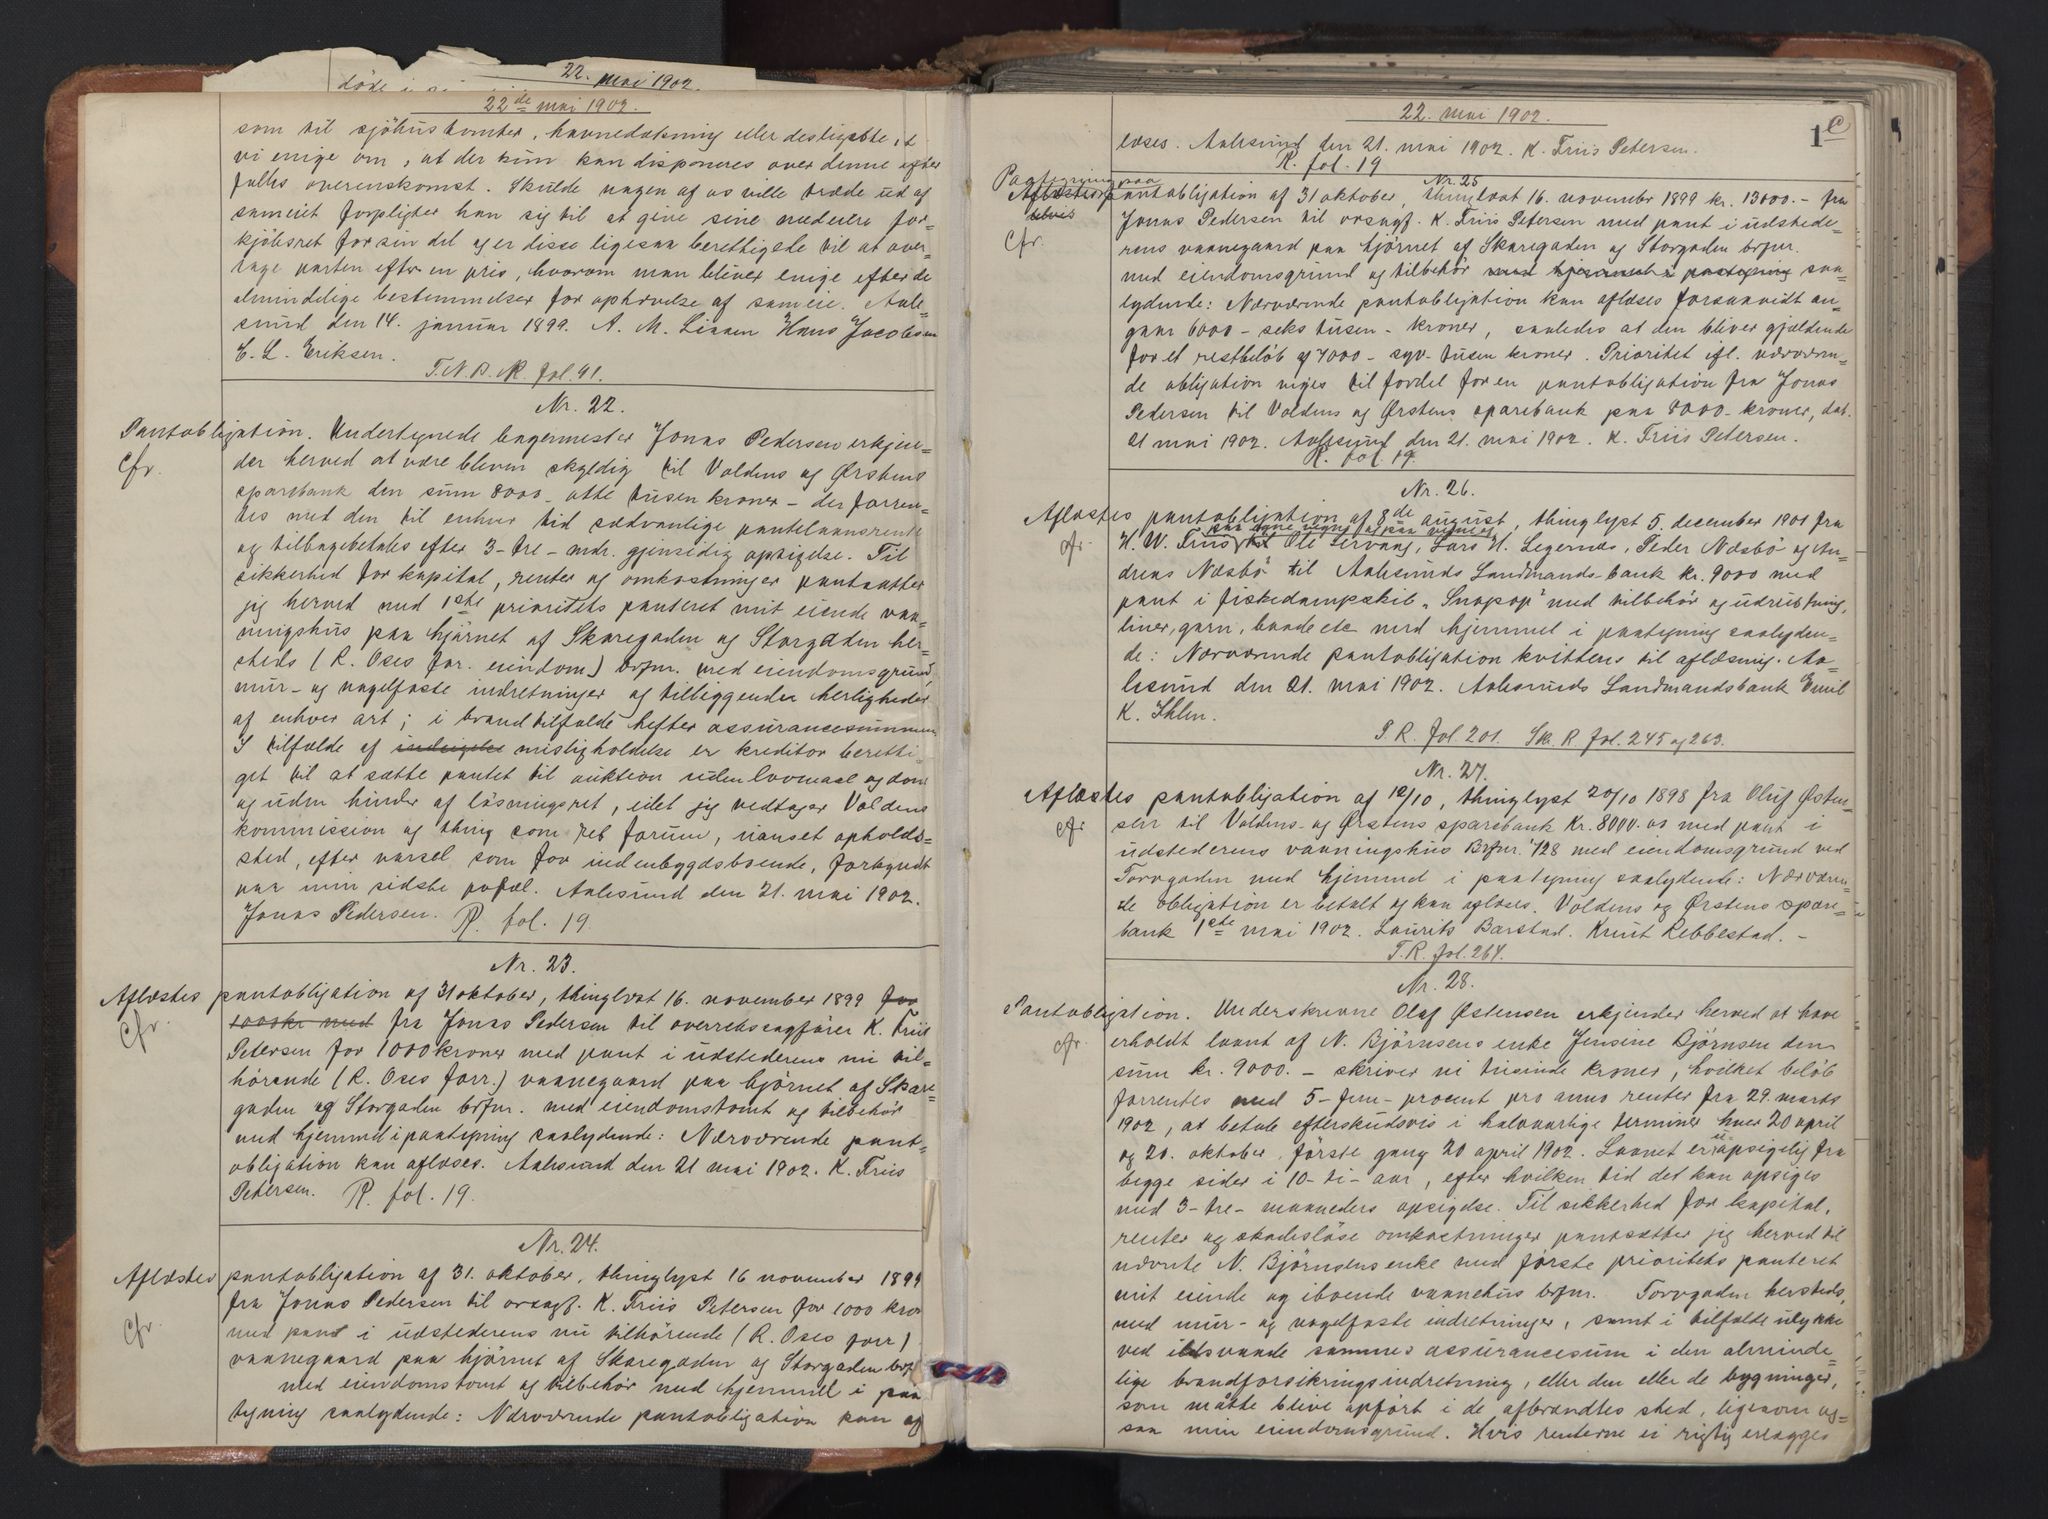 22. mai 1902.
døde i
22de mai 1902.
som til sjöhustomter, havnedækning eller desligeste, er
vi enige om, at der kun kan disponeres over denne efter
fælles overenskomst. Skulde nogen af os ville træde ud af
sameiet forpligter han sig til at give sine medeiere for-
kjöbsret for sin del og er disse ligesaa berettigede til at over-
tage parten efter en pris, hvorom man bliver enige efter de
almindelige bestemmelser for ophævelse af sameie. Aale-
sund den 14. januar 1899. A. M. Liaaen Hans Jacobsen
E. L. Eriksen.
T.N.B.R. fol. 91.
Nr. 22.
Pantobligation. Undertegnede bagermester Jonas Pedersen erkjen-
cfr. der herved at være bleven skyldig til Voldens og Ørstens
sparebank den sum 8000 - otte tusen kroner - der forren-
tes med den til enhver tid sædvanlige pantelaansrente
og tilbagebetales efter 3 - tre - mdr. gjensidig opsigelse. Til
sikkerhed for kapital, renter og omkostninger pantsætter
jeg herved med 1ste prioritets panteret mit eiende vaa-
ningshus paa hjörnet af Skaregaden og Storgaden her-
steds (R. Oses for. eiendom) brfnr. med eiendomsgrund
mur- og nagelfaste indretninger og tilliggender herligheder
af enhver art; i brandtilfælde hefter assurancesummen
I tilfælde af misligholdelse er kreditor beretti-
get til at sætte pantet til auktion uden lovmaal og dom
og uden hinder af lösningsret, idet jeg vedtager Voldens
kommission og thing som ret forum, uanset opholds-
sted, efter varsel som for indenbygdsboende, forkyndt
paa min sidste bopæl. Aalesund den 21. mai 1902.
Jonas Pedersen. R. fol. 19.
Nr. 23.
Aflæstes pantobligation af 31 oktober, thinglæst 16. november 1899 for
cfr. 1000 kr med fra Jonas Pedersen til overretssagförer K. Friis
Petersen for 1000 kroner med pant i udstederens nu til-
hörende (R. Oses forr.) vaanegaard paa hjörnet af Skare
gaden og Storgaden brfnr. med eiendomstomt og tilbehör
med hjemmel i paategning saalydende: Nærværende pant-
obligation kan aflæses. Aalesund den 21 mai 1902. K. Friis
Petersen. R. fol. 19.
Nr. 24.
Aflæstes pantobligation af 31. oktober, thinglyst 16 november 1899
cfr. fra Jonas Pedersen til orsagf. K. Friis Petersen for 1000 kron
med pant i udstederens nu tilhörende (R. Oses forr)
vaanegaard paa hjörnet af Skaregaden og Storgaden brfn
med eiendomstomt og tilbehör med hjemmel i paa
tegning saalydende: Nærværende pantobligation kan af
22. mai 1902.
1 C
læses. Aalesund den 21. mai 1902. K. Friis Petersen.
R. fol. 19
Nr. 25
Paategning paa
Aflæstes pantobligation af 31 oktober, thinglæst 16. november 1899 kr. 13000.- fra
Jonas Pedersen til orsagf. K. Friis Petersen med pant i udstede-
cfr. rens vaanegaard paa hjörnet af Skaregaden og Storgaden brfnr.
med eiendomsgrund og tilbehör med hjemmel i paategning saa-
lydende: Nærværende pantobligation kan aflæses forsaavidt an-
gaar 6000 - seks tusen - kroner, saaledes at den bliver gjældende
for et restbeløb af 7000 - syv - tusen kroner. Prioritet ifl. nærværen-
de obligation viges til fordel for en pantobligation fra Jonas
Pedersen til Voldens og Ørstens sparebank paa 8000 - kroner, dat.
21 mai 1902. Aalesund den 21. mai 1902. K. Friis Petersen.
R. fol. 19.
Nr. 26.
Aflæstes pantobligation af 8de august, thinglyst 5. december 1901 fra
paa egne vegne og paa vegne af
cfr. H. W. Friis Ole Servang, Lars H. Legernæs, Peder Næsbö og An-
dreas Næsbö til Aalesunds Landmandsbank kr. 9000 med
pant i fiskedampskib "Snapop" med tilbehör og udrustning,
liner, garn, baade etc med hjemmel i paategning saalyden-
de: Nærværende pantobligation kvitteres til aflæsning. Aa-
lesund den 21. mai 1902. Aalesunds Landmandsbank Emil
K. Ihlen.
P. R. fol. 201. Sk. R fol. 245 og 263.
Nr. 27.
Aflæstes pantobligation af 12/10, thinglyst 20/10 1898 fra Oluf Østen-
cfr. sen til Voldens- og Ørstens sparebank Kr. 8000.00 med pant i
udstederens vaaningshus Brfnr. 128 med eiendomsgrund ved
Torvgaden med hjemmel i paategning saalydende: Nærværen-
de obligation er betalt og kan aflæses. Voldens og Ørstens spare-
bank 1ste mai 1902. Laurits Barstad. Knut Rebbestad. -
T.R. fol. 264.
Nr. 28.
Pantobligation. Underskrevne Olaf Østensen erkjender herved at have
cfr. erholdt laant af N. Björnsens enke Jensine Björnsen den
sum kr. 9000. - skriver ni tusinde kroner, hvilket belöb
forrentes med 5 - fem - procent pro anno renter fra 29. marts
1902, at betale efterskudsvis i halvaarlige terminer hver 20 april
og 20. oktober, förste gang 20 april 1902. Laanet er uopsigelig fra
begge sider i 10 - ti - aar, efter hvilken tid det kan opsiges
med 3 - tre - maaneders opsigelse. Til sikkerhed for kapital,
renter og skadeslöse omkostninger pantsætter jeg herved til
nævnte N. Björnsens enke med förste prioritets panteret
mit eiende og iboende vaanehus brfnr. Torvgaden hersteds,
med mur- og nagelfaste indretninger, samt i tilfælde ulykke
ved ildsvaade sammes assurancesum i den alminde-
lige brandforsikringsindretning, eller den eller de bygninger,
som måtte blive opfört i de afbrændtes sted, ligesom og-
saa min eiendomsgrund. Hvis renterne ei rigtig erlægges